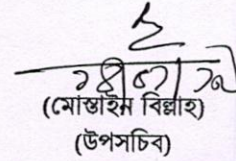 (মোস্তাইন বিল্লাহ)
(উপসচিব)